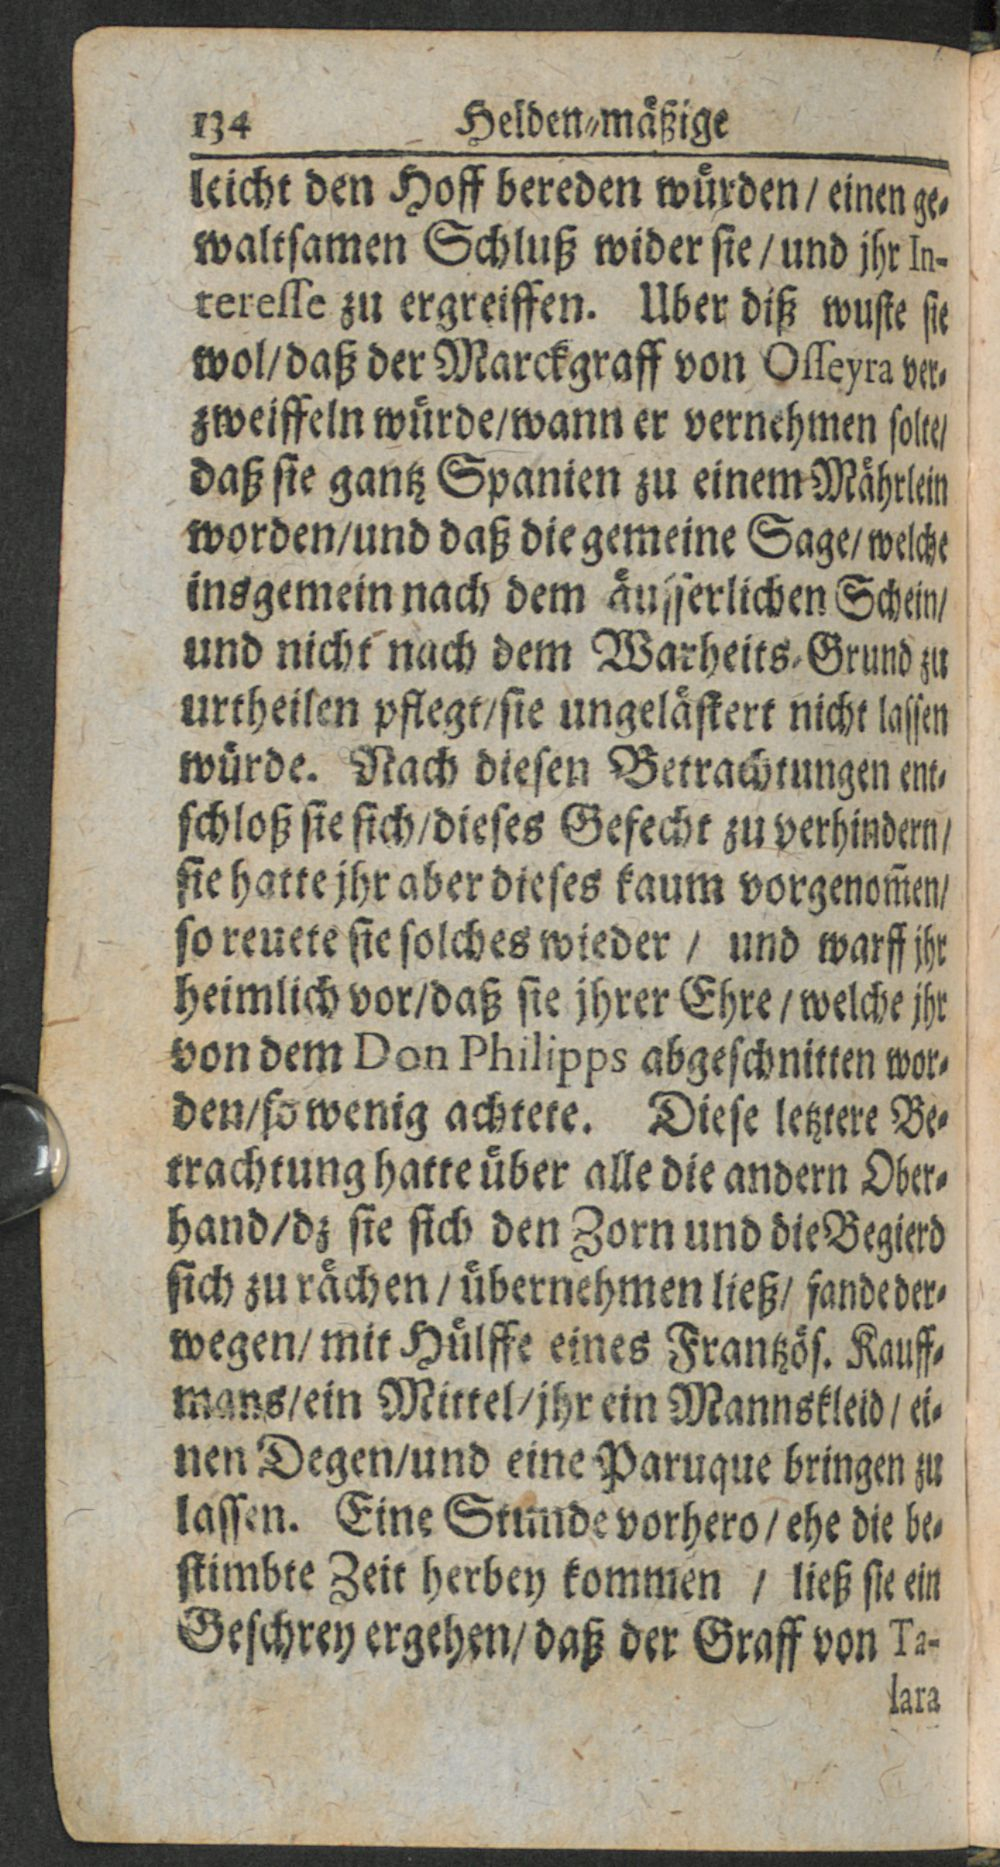 134 Helden-mäßige
leicht den Hoff bereden würden / einen ge-
waltsamen Schluß wider sie / und jhr In-
teresse zu ergreiffen. Uber diß wuste sie
wol / daß der Marckgraff von Osseyra ver-
zweiffeln würde / wann er vernehmen solte /
daß sie gantz Spanien zu einem Mährlein
worden / und daß die gemeine Sage / welche
insgemein nach dem äusserlichen Schein /
und nicht nach dem Warheits-Grund zu
urtheilen pflegt / sie ungelästert nicht lassen
würde. Nach diesen Betrachtungen ent-
schloß sie sich / dieses Gefecht zu verhindern /
sie hatte jhr aber dieses kaum vorgenom̃en /
so reuete sie solches wieder / und warff jhr
heimlich vor / daß sie jhrer Ehre / welche jhr
von dem Don Philipps abgeschnitten wor-
den / so wenig achtete. Diese letztere Be-
trachtung hatte über alle die andern Ober-
hand / dz sie sich den Zorn und die Begierd
sich zu rächen / übernehmen ließ / fande der-
wegen / mit Hülffe eines Frantzös. Kauff-
mans / ein Mittel / jhr ein Mannskleid / ei-
nen Degen / und eine Paruque bringen zu
lassen. Eine Stunde vorhero / ehe die be-
stimbte Zeit herbey kommen / ließ sie ein
Geschrey ergehen / daß der Graff von Ta-
lara